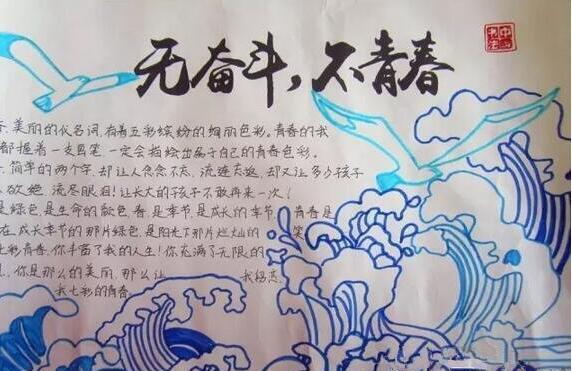 无奋斗，不青春
中国
书法
春，美丽的代名词，有着五彩缤纷的绚丽色彩。青春的我
都握着一支画笔，一定会描绘出属于自己的青春色彩。
简单的两个字，却让人念念不忘，流连忘返，却又让多少孩子
欲绝，流尽眼泪！让长大的孩子不敢再来一次！
是绿色，是生命的颜色，春，是季节，是成长的季节，青春是
在成长季节的那片绿色，是阳光下那片灿烂的 笑
七彩青春，你丰富了我的人生！你充满了无限的
你是那么的美丽，那么让 我
我七彩的青春